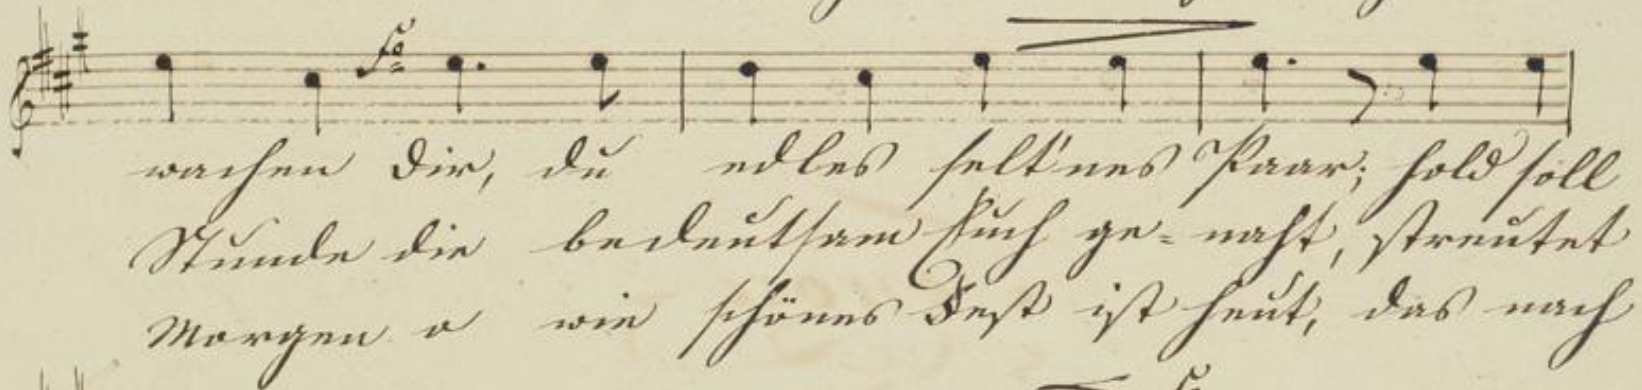 wachen dir, du edles selt'nes Paar; hold soll
Stunde die bedeutsam Euch ge=naht, streutet
Morgen o wie schönes Fest ist heut, das nach